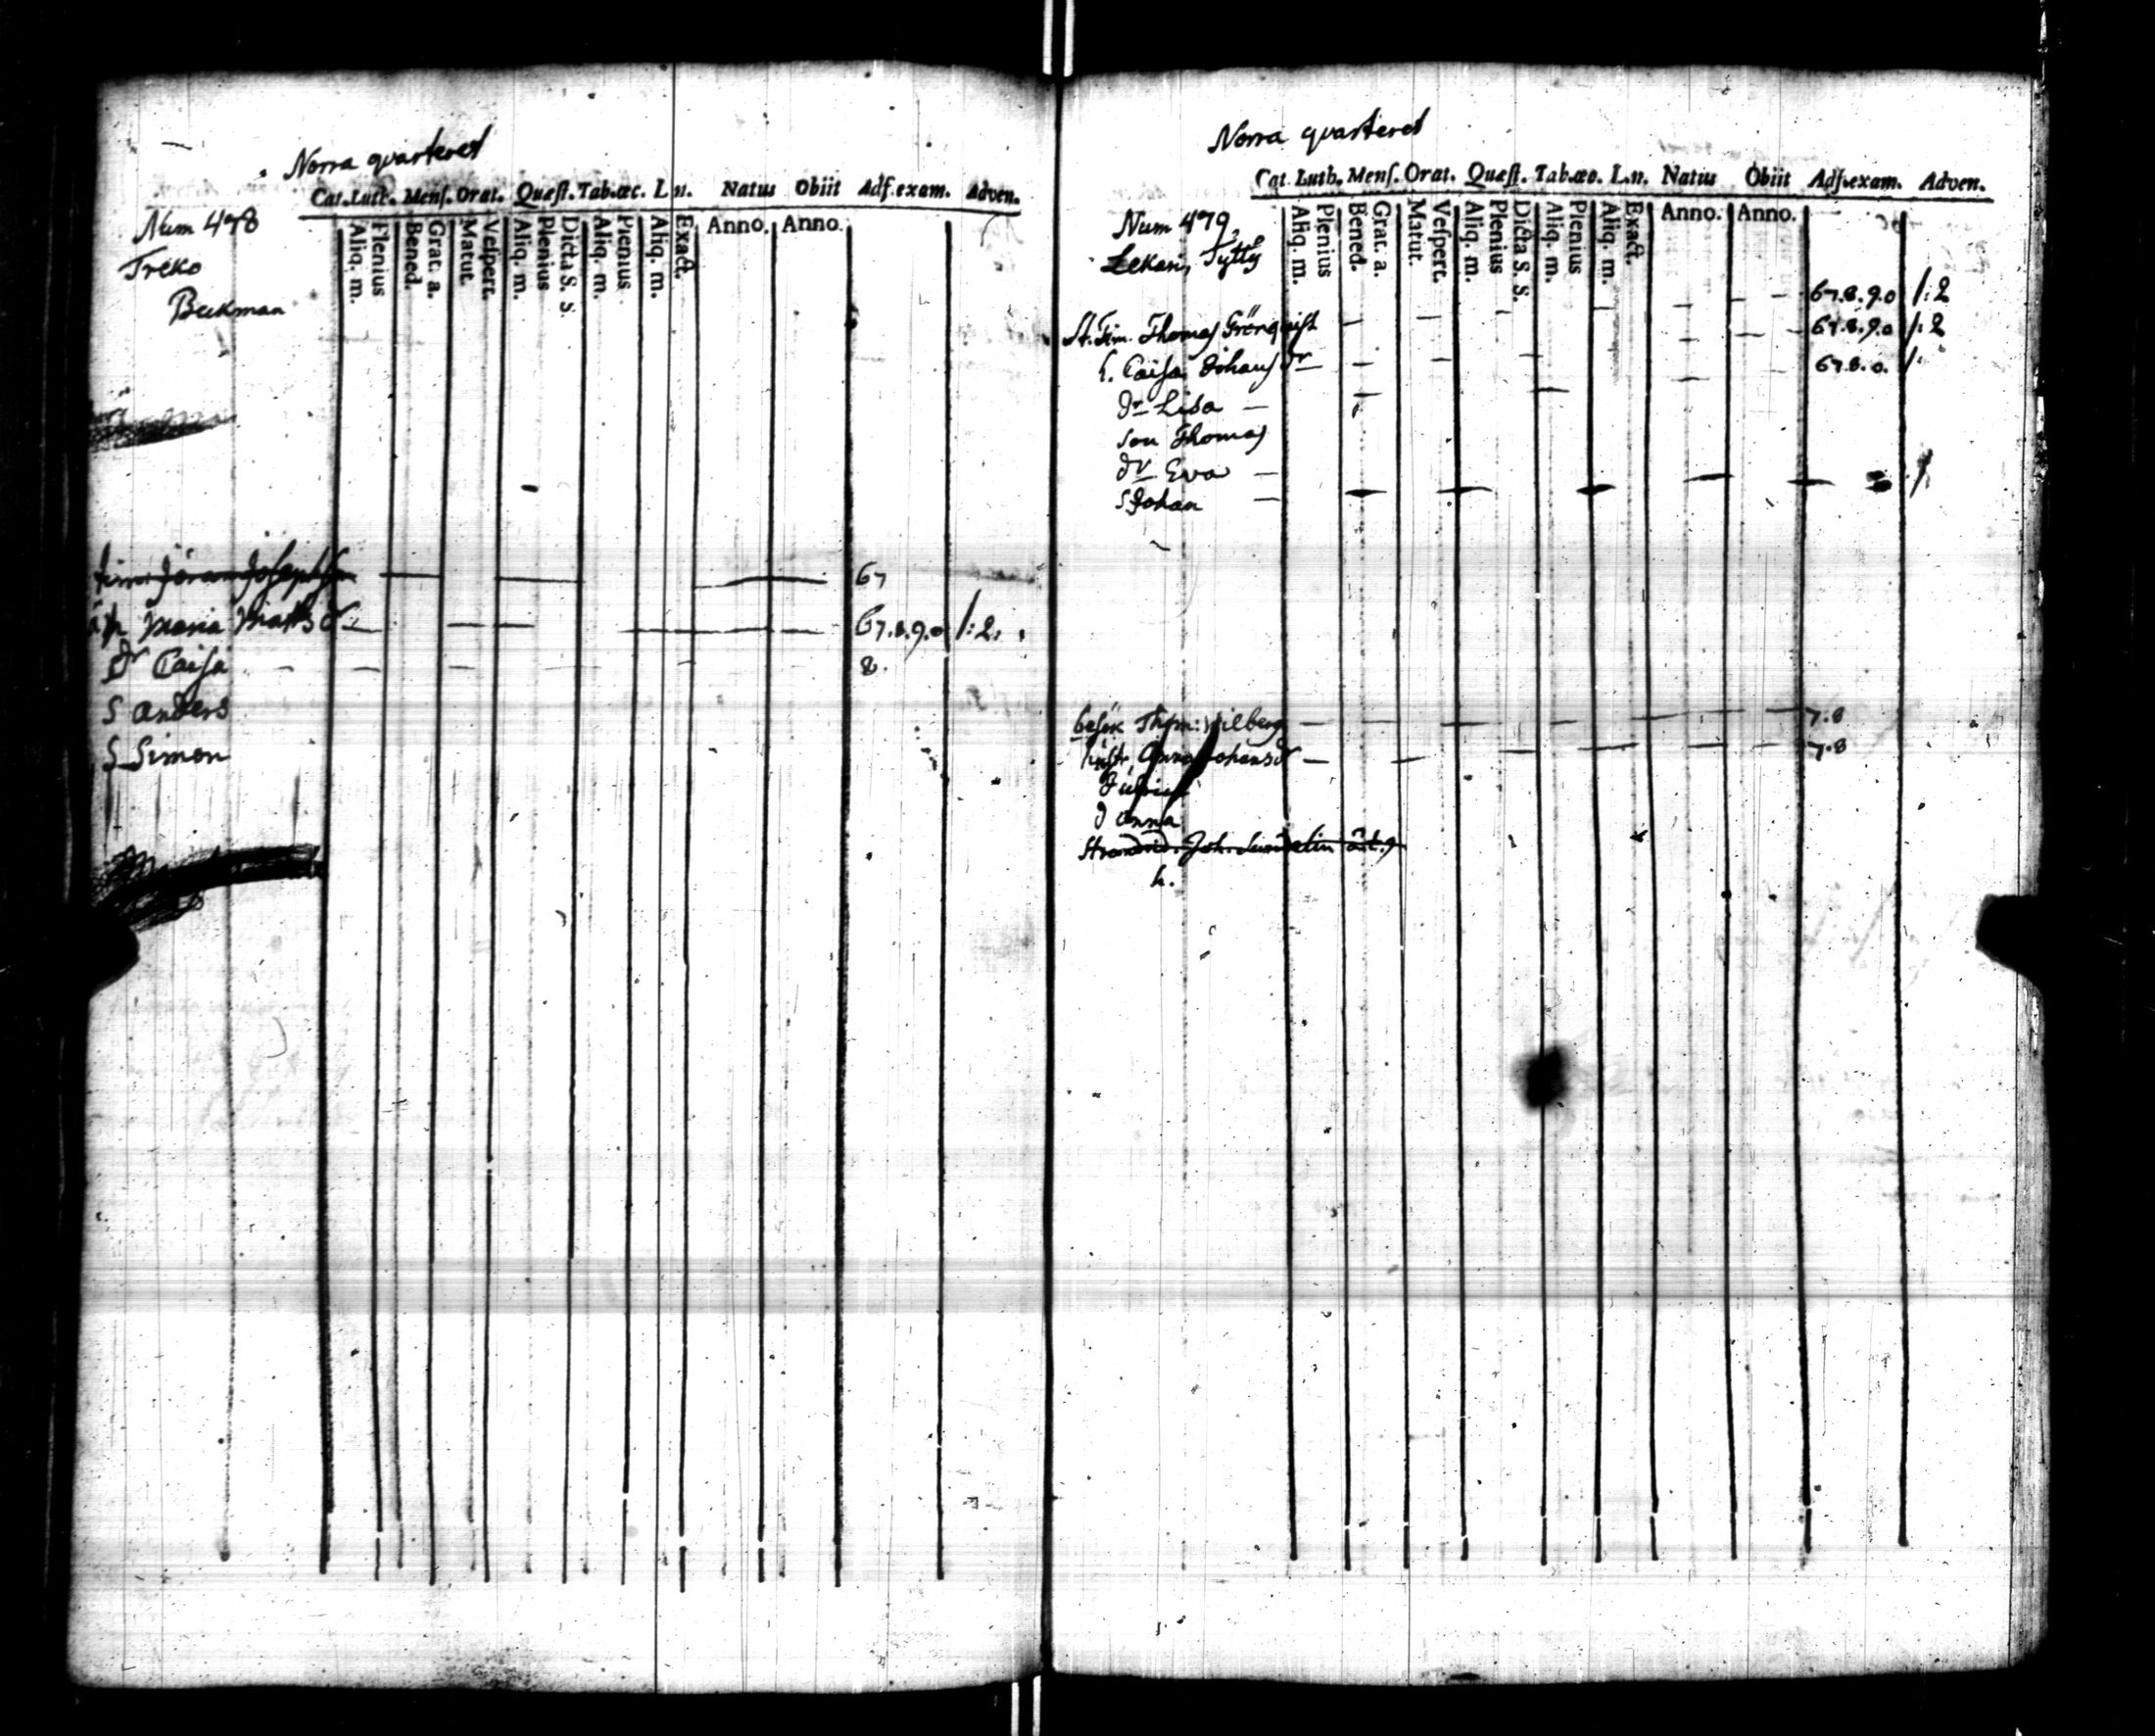 Norra quarteret
Cat. Luth. Mens. Orat. Quæst. Tab.œc. L n. Natus Obiit Ads.exam. Adven.
Aliq. m. Plenius Bened. Grat. a. Matut. Vespert. Aliq. m. Plenius Dicta S. S. Aliq. m. Plenius Aliq. m. Exact. Anno. Anno.
Num 478
Treko
Beckman
Jöran Josephsson 67
Maria Matts dr 67.8.9.0 /:2.
Dr Caisa 8.
S Anders
S Simon
Norra quarteret
Cat. Luth. Mens. Orat. Quæst. Tab.œo. L.n. Natus Obiit Ads.exam. Adven.
Aliq. m. Plenius Bened. Grat. a. Matut. Vespert. Aliq. m. Plenius Dicta S. S. Aliq. m. Plenius Aliq. m. Exact. Anno. Anno.
Num 479
St. Tim. Thomas Grönqvist 67.8.9.0 /:2
h. Caisa Johans dr 67.8.9.0 /:2
dr Lisa 67.8.0. /:
son Thomas
dr Eva
S Johan
Thom: Wilberg 7.8
Anna Johansdr 7.8
d Anna
Joh. ält.
h.